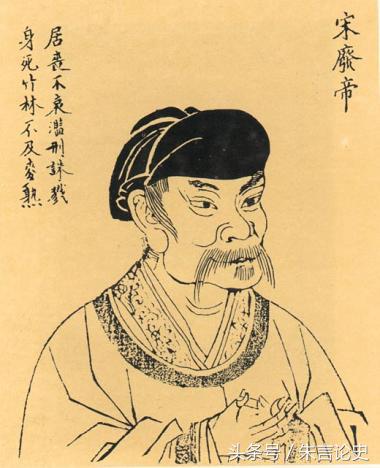 宋廢帝
居喪不哀濫刑誅戮
身死竹林不及麥熟
头条号/朱言论史